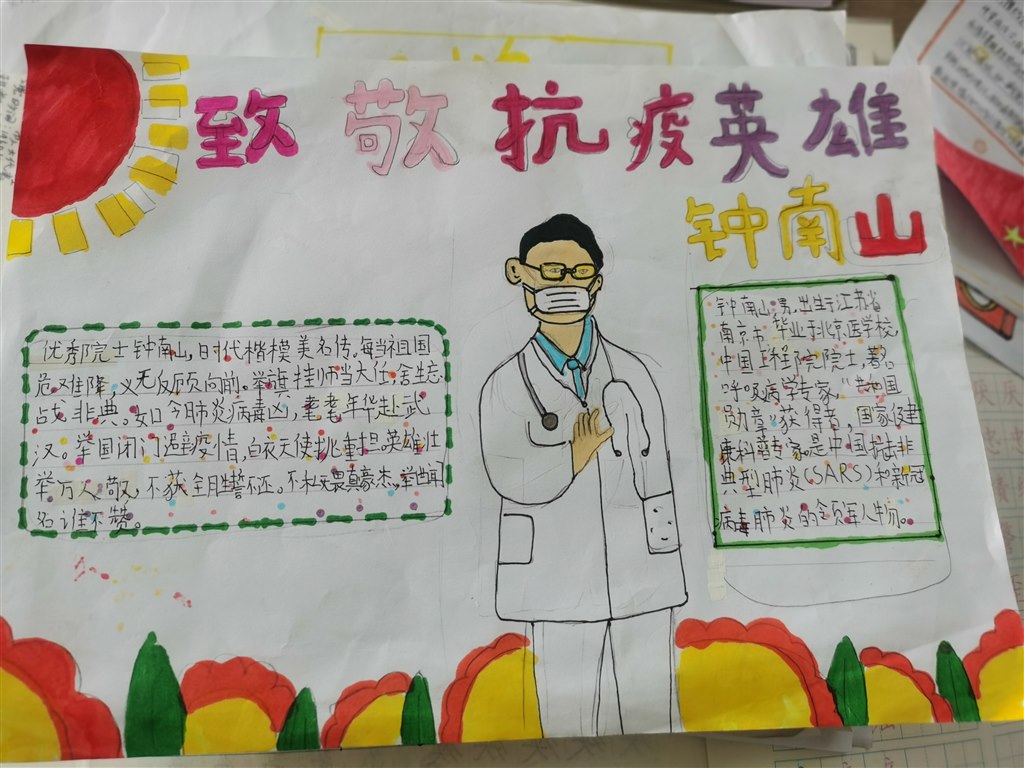 致敬抗疫英雄
钟南山
优秀院士钟南山,时代楷模美名传。每当祖国
危难降,义无反顾向前。举旗挂帅当大任,舍生忘
战非典。如今肺炎病毒凶,耄耋年华赴武
汉。举国闭门遏疫情,白衣天使挑重担。英雄壮
举万人敬,不获全胜誓不还。不私无畏真豪杰,举世闻
名谁不赞。
钟南山,男,出生于江苏省
南京市,毕业于北京医学校,
中国工程院院士,著名
呼吸病学专家,“共和国
勋章”获得者,国家健
康科普专家。是中国抗击非
典型肺炎(SARS)和新冠
病毒肺炎的领军人物。